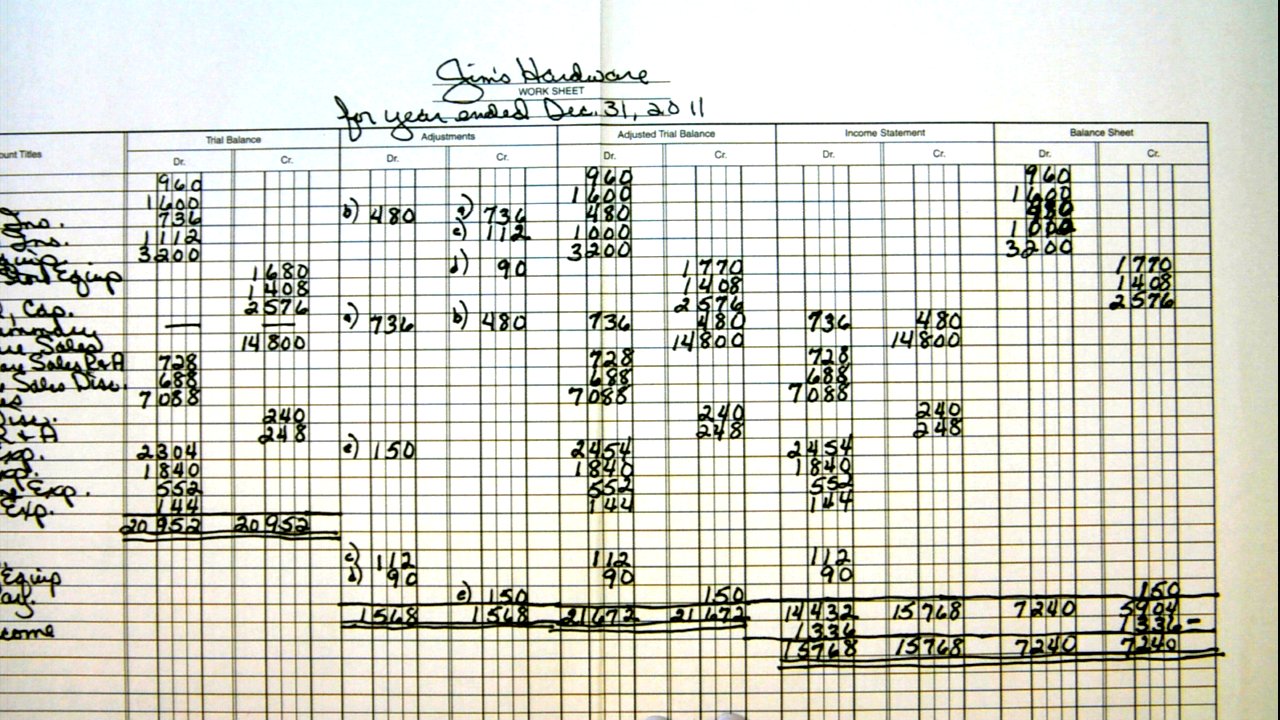 Jim's Hardware
WORK SHEET
for year ended Dec. 31, 2011
ount Titles Trial Balance Adjustments Adjusted Trial Balance Income Statement Balance Sheet
Dr. Cr. Dr. Cr. Dr. Cr. Dr. Cr. Dr. Cr.
960 960 960
1600 1600 1600
Ins. 736 b) 480 a) 736 480 480
Ins. 1112 c) 112 1000 1000
Equip. 3200 3200 3200
Store Equip 1680 d) 90 1770 1770
1408 1408 1408
Cap. 2576 2576 2576
ummary — — a) 736 b) 480 736 480 736 480
are Sales 14800 14800 14800
are Sales R&A 728 728 728
e Sales Disc. 688 688 688
es 7088 7088 7088
Disc. 240 240 240
R & A 248 248 248
Exp. 2304 e) 150 2454 2454
xp. 1840 1840 1840
Exp. 552 552 552
Exp. 144 144 144
20952 20952
c) 112 112 112
Equip d) 90 90 90
ay. e) 150 150 150
1568 1568 21672 21672 14432 15768 7240 5904
come 1336 1336 -
15768 15768 7240 7240